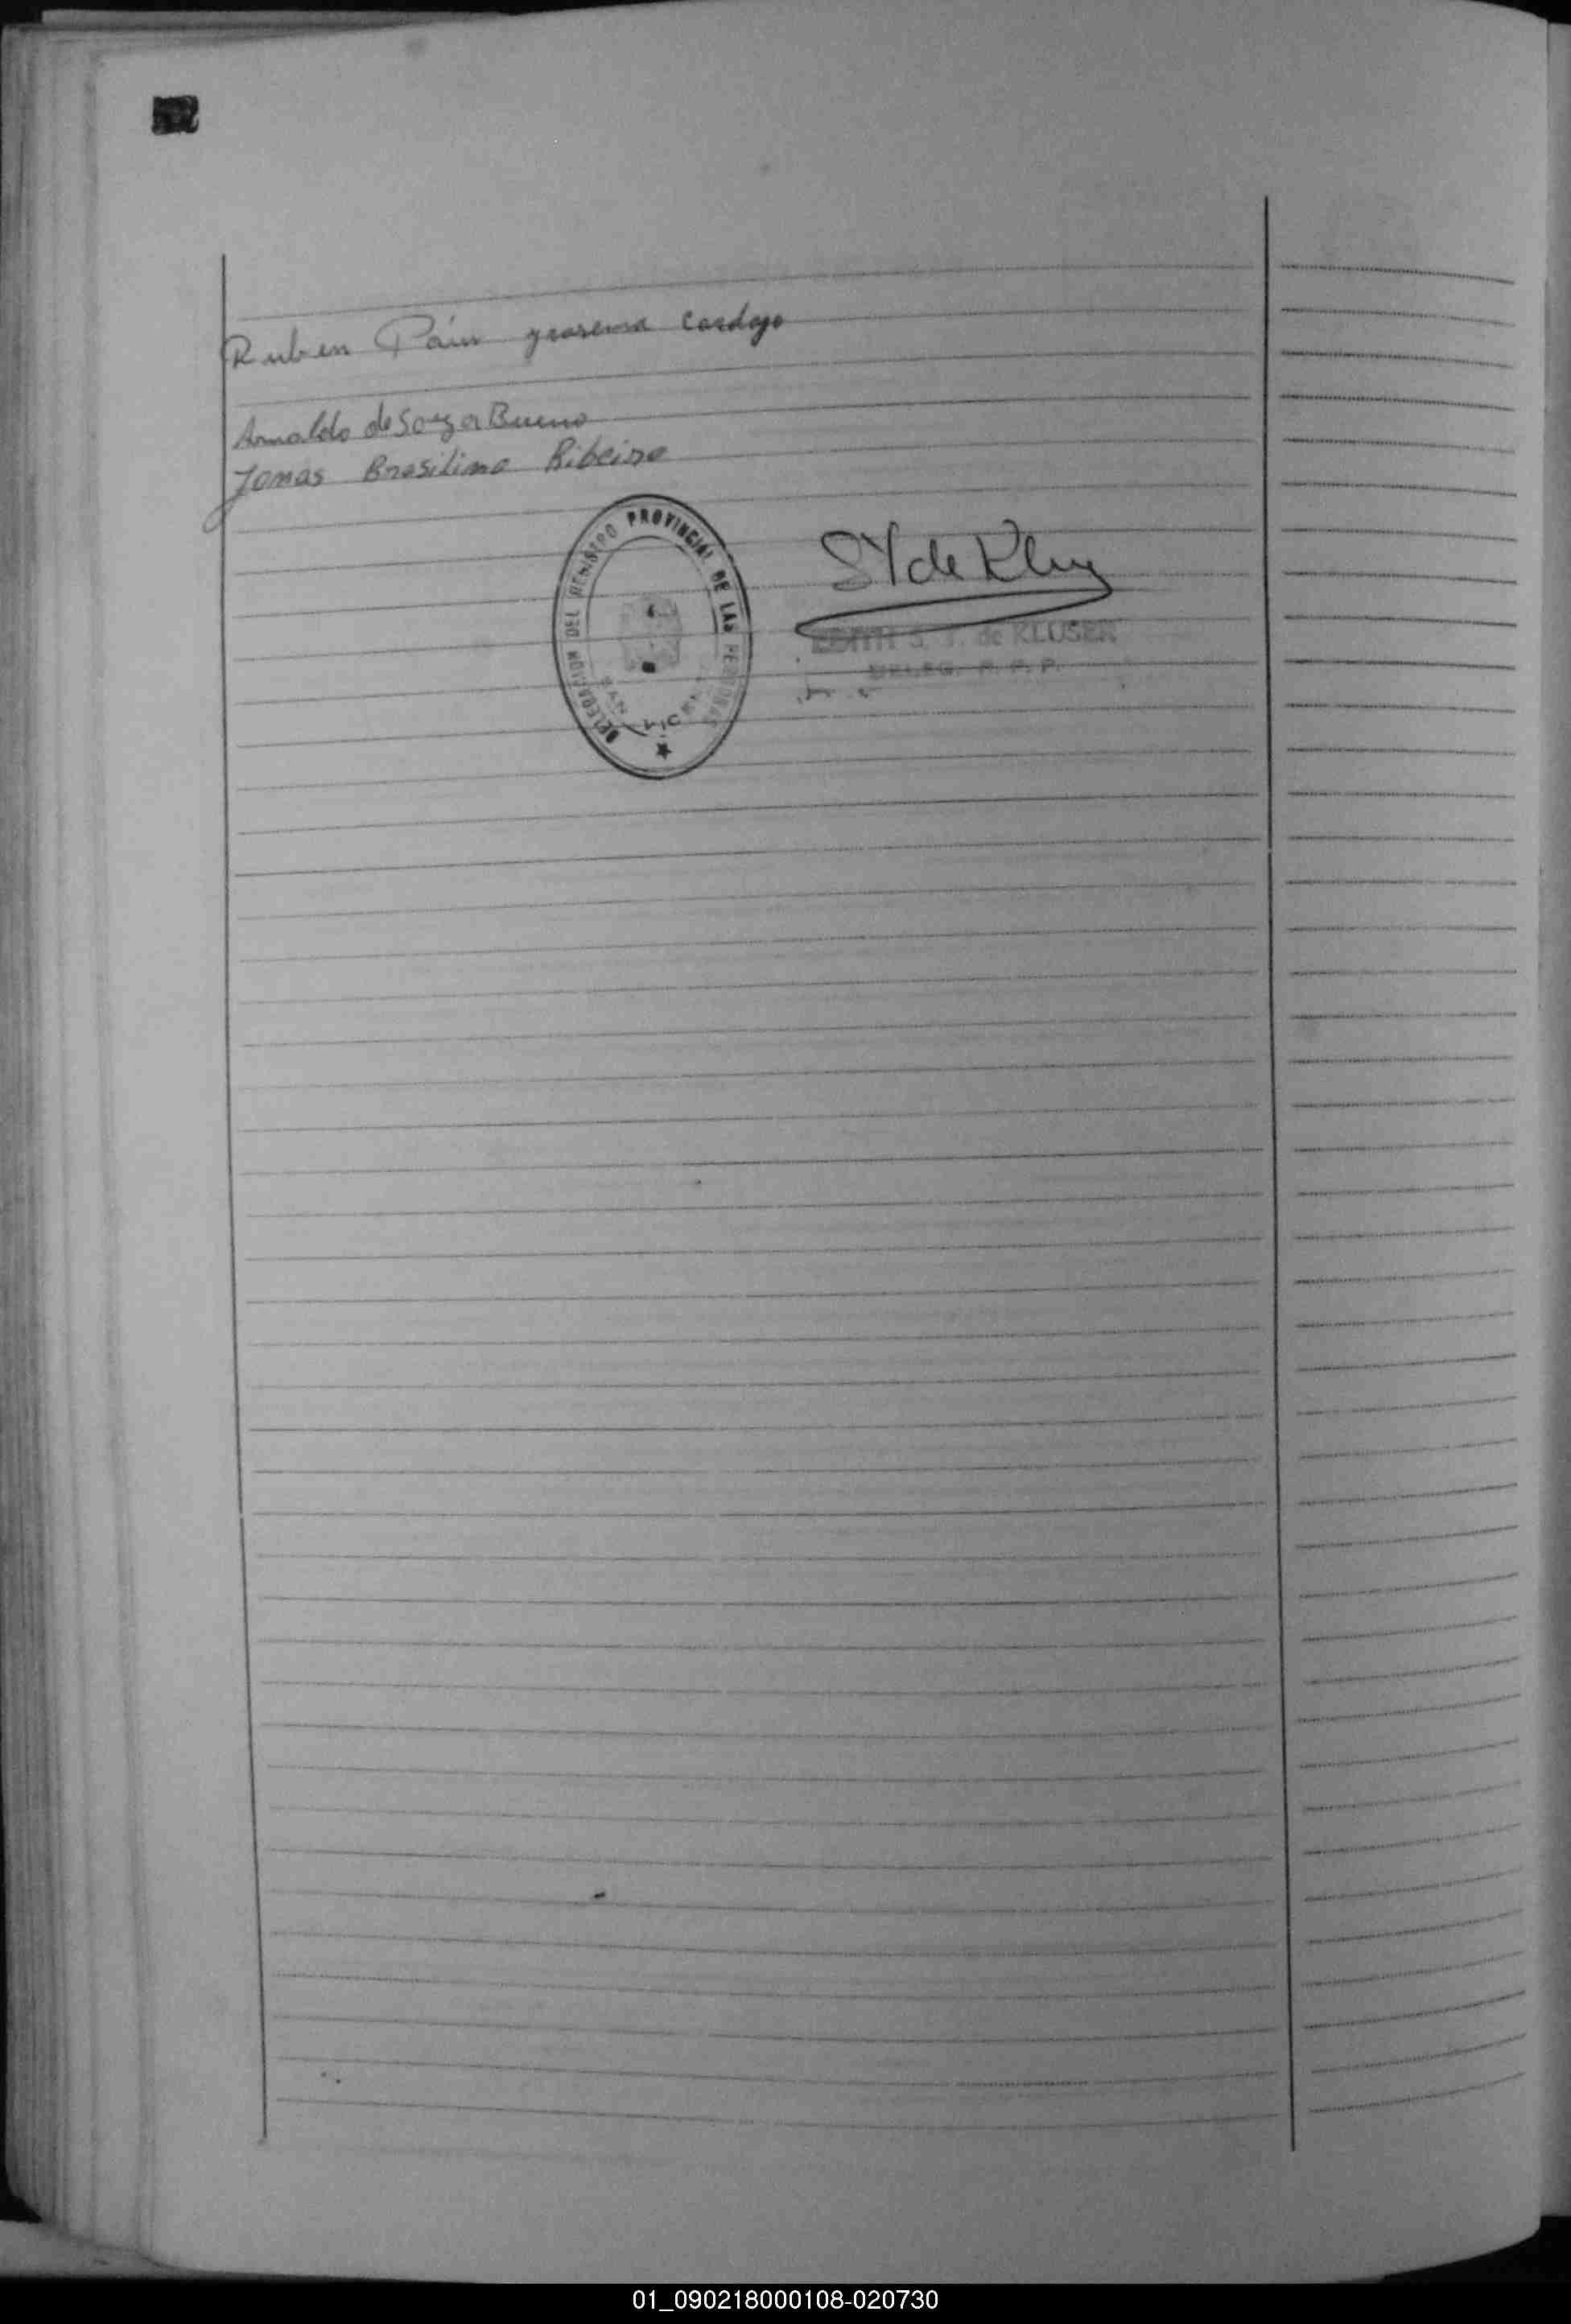 Ruben Páiv yrasema Cardozo
Arnaldo de Souza Bueno
Jonas Brasilino Ribeiro
SY de Klus
DELEGACION DEL REGISTRO PROVINCIAL DE LAS PERSONAS
SAN VICENTE
EDITH S. Y. de KLUSER
DELEG. R. P. P.
01_090218000108-020730